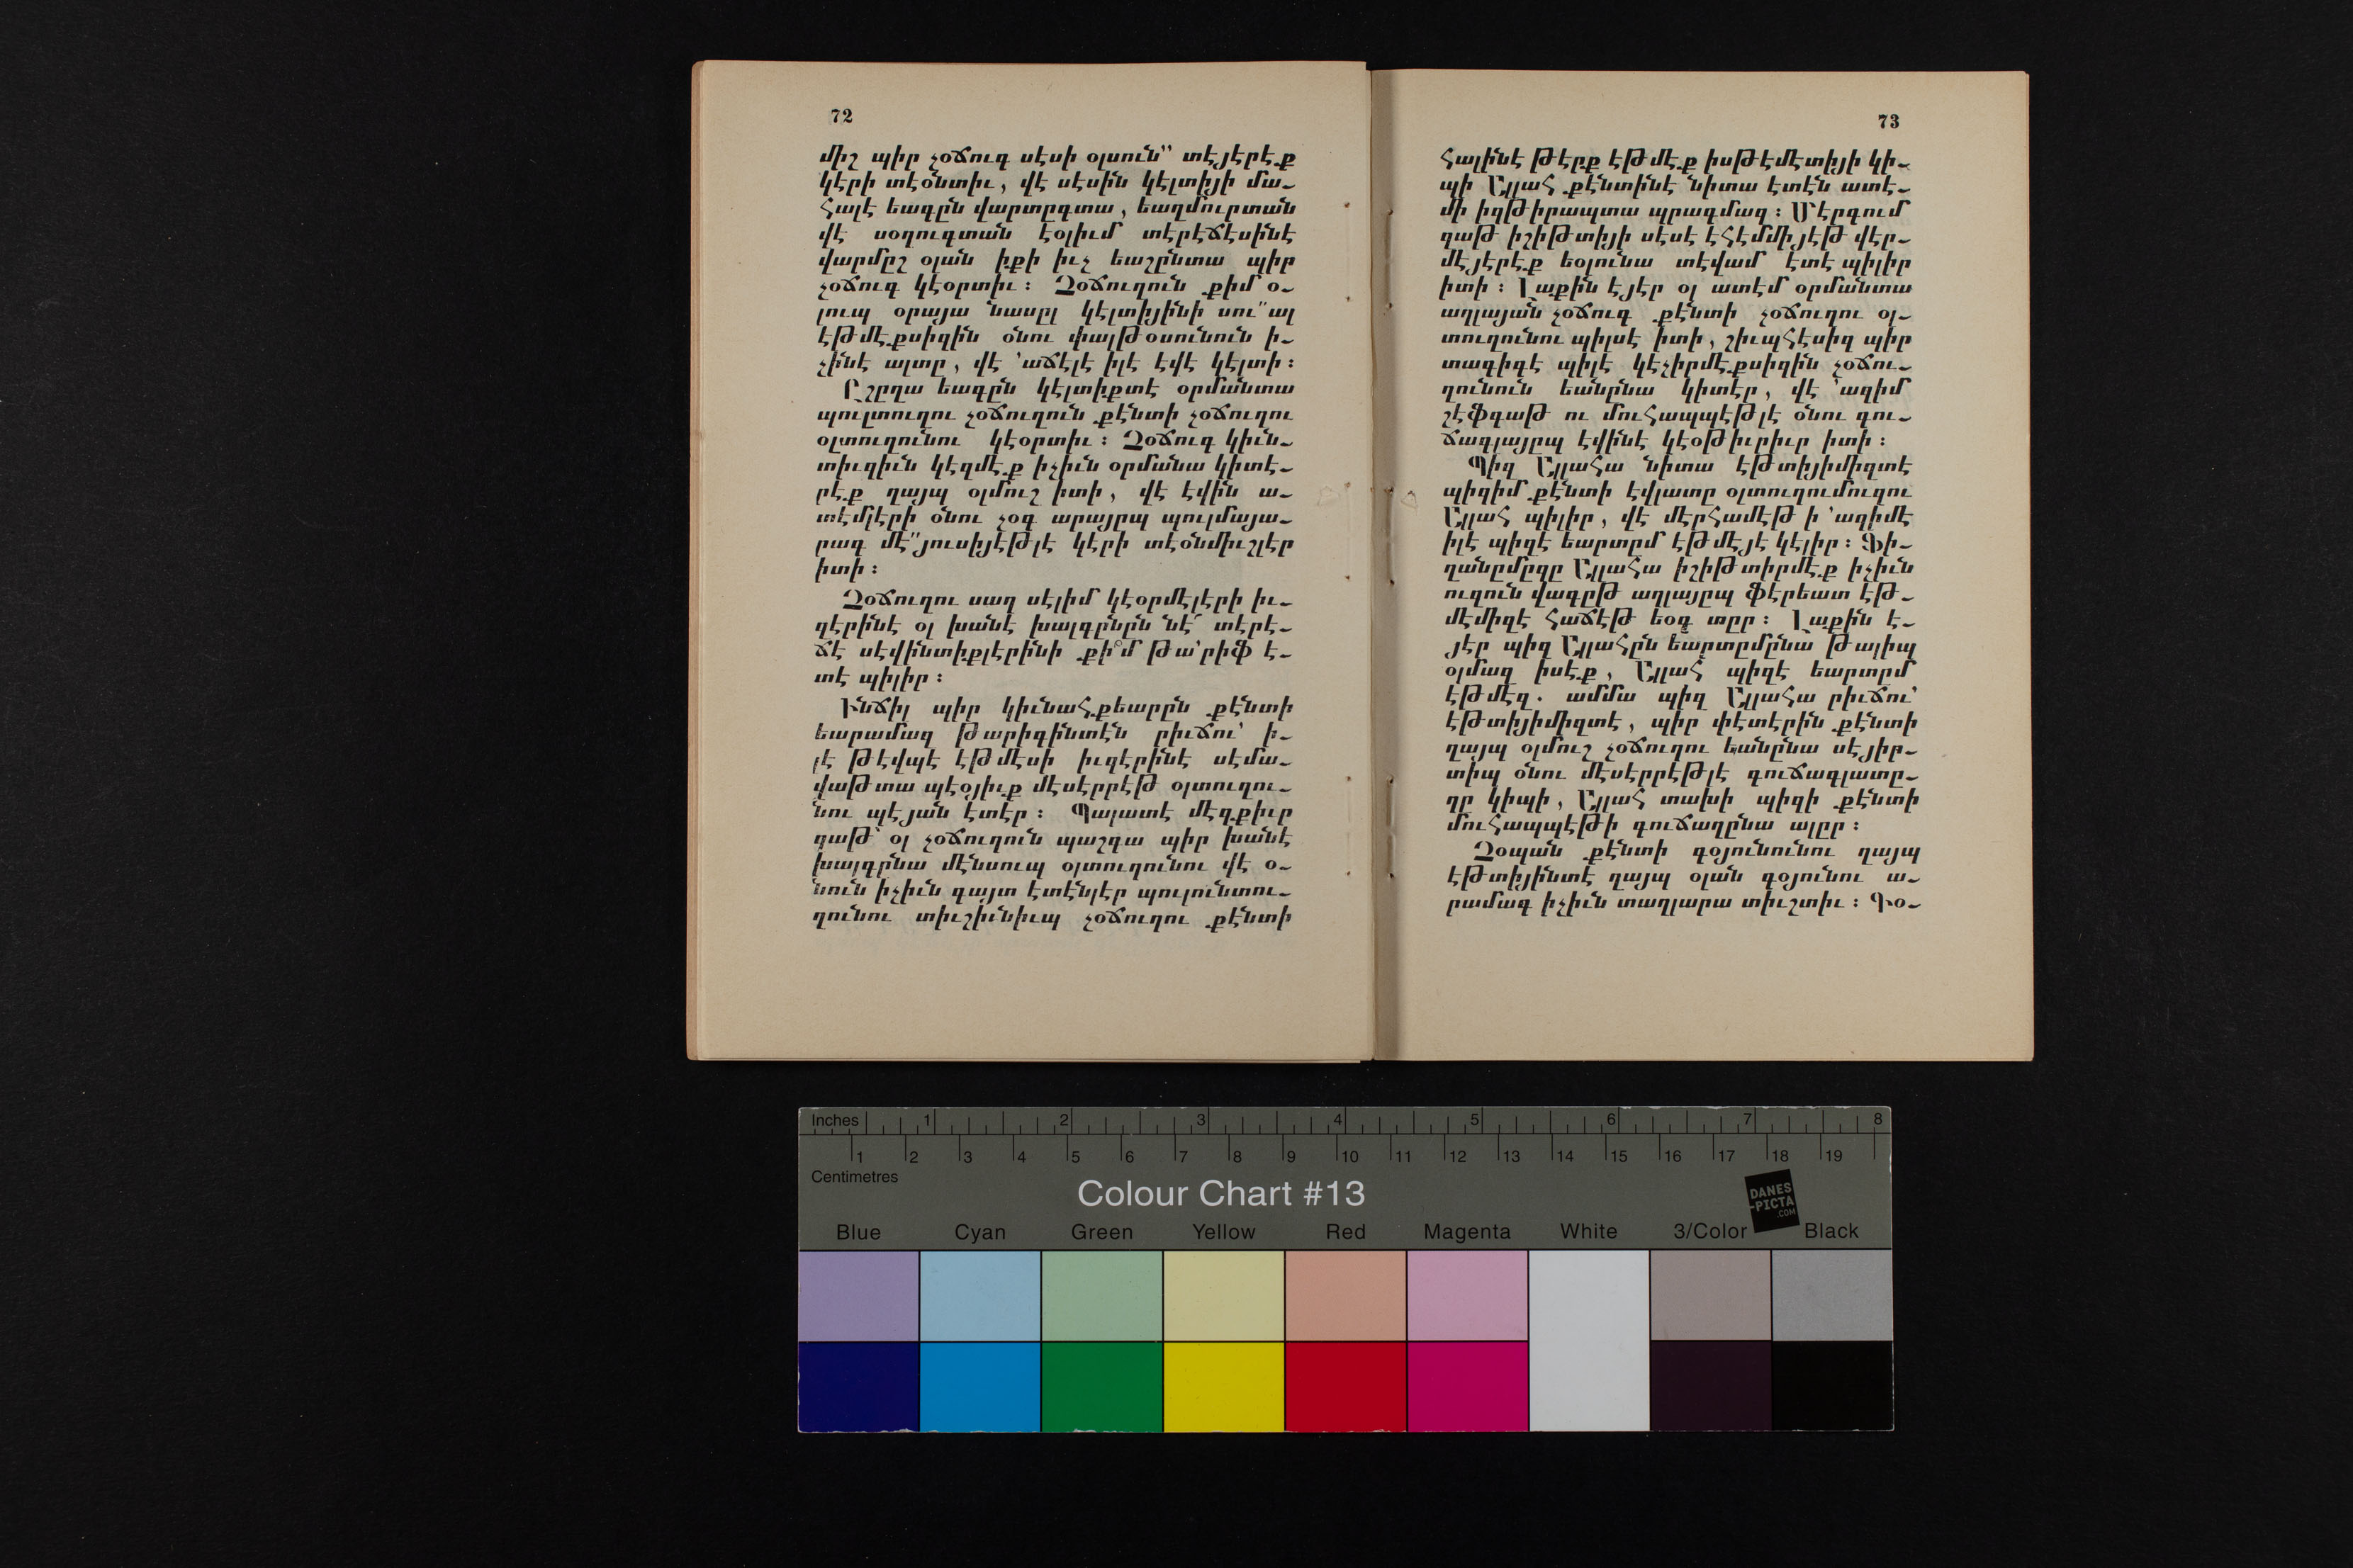 72
միշ պիր չօճուգ սէսի օլսուն" տէյէրէք
կէրի տէօնտիւ, վէ սէսին կէլտիյի մա֊
հալէ եագըն վարտըգտա, եաղմուրտան
վէ սօղուգտան էօլիւմ տէրէճէսինէ
վարմըշ օլան իքի իւչ եաշընտա պիր
չօճուգ կէօրտիւ։ Չօճուղուն քիմ օ֊
լուպ օրայա նասըլ կէլտիյինի սու"ալ
էթմէքսիզին օնու փալթօսունուն ի֊
չինէ ալտը, վէ ՚աճէլէ իլէ էվէ կէլտի։
Ըշըղա եագըն կէլտիքտէ օրմանտա
պուլտուղու չօճուղուն քէնտի չօճուղու
օլտուղունու կէօրտիւ։ Չօճուգ կիւն֊
տիւզիւն կէզմէք իչիւն օրմանա կիտէ֊
րէք ղայպ օլմուշ իտի, վէ էվին ա֊
տէմլէրի օնու չօգ արայըպ պուլմայա֊
րագ մէ"յուսիյէթլէ կէրի տէօնմիւշլէր
իտի։
Չօճուղու սաղ սէլիմ կէօրմէլէրի իւ֊
զէրինէ օլ խանէ խալգընըն նէ՜ տէրէ֊
ճէ սէվինտիքլէրինի քի՞մ թա՚րիֆ է֊
տէ պիլիր։
Ինճիլ պիր կիւնահքեարըն քէնտի
եարամազ թարիգինտէն րիւճու՚ ի֊
լէ թէվպէ էթմէսի իւզէրինէ սէմա֊
վաթտա պէօյիւք մէսէրրէթ օլտուղու֊
նու պէյան էտէր։ Պալատէ մէզքիւր
զաթ՝ օլ չօճուղուն պաշգա պիր խանէ
խալգընա մէնսուպ օլտուղունու վէ օ֊
նուն իչիւն գայտ էտէնլէր պուլունտու֊
ղունու տիւշիւնիւպ չօճուղու քէնտի
73
հալինէ թէրք էթմէք իսթէմէտիյի կի֊
պի Ալլահ քէնտինէ նիտա էտէն ատէ֊
մի իզթիրապտա պրագմազ։ Մէրգում
զաթ իշիթտիյի սէսէ էհէմմիյէթ վէր֊
մէյէրէք եօլունա տէվամ էտէ պիլիր
իտի։ Լաքին էյէր օլ ատէմ օրմանտա
աղլայան չօճուգ քէնտի չօճուղու օլ֊
տուղունու պիլսէ իտի, շիւպհէսիզ պիր
տագիգէ պիլէ կէչիրմէքսիզին չօճու֊
ղունուն եանընա կիտէր, վէ ՚ազիմ
շէֆգաթ ու մուհապպէթլէ օնու գու֊
ճագլայըպ էվինէ կէօթիւրիւր իտի։
Պիզ Ալլահա նիտա էթտիյիմիզտէ
պիզիմ քէնտի էվլատը օլտուղումուզու
Ալլահ պիլիր, վէ մէրհամէթ ի ՚ազիմէ
իլէ պիզէ եարտըմ էթմէյէ կէլիր։ Ֆի֊
ղանըմըզը Ալլահա իշիթտիրմէք իչիւն
ուզուն վագըթ աղլայըպ ֆէրեատ էթ֊
մէմիզէ հաճէթ եօգ տըր։ Լաքին է֊
յէր պիզ Ալլահըն եարտըմընա թալիպ
օլմազ իսէք, Ալլահ պիզէ եարտըմ
էթմէզ. ամմա պիզ Ալլահա րիւճու՚
էթտիյիմիզտէ, պիր փէտէրին քէնտի
ղայպ օլմուշ չօճուղու եանընա սէյիր֊
տիպ օնու մէսէրրէթլէ գուճագլատը֊
ղը կիպի, Ալլահ տախի պիզի քէնտի
մուհապպէթի գուճաղընա ալըր։
Չօպան քէնտի գօյունունու ղայպ
էթտիյինտէ ղայպ օլան գօյունու ա֊
րամագ իչիւն տաղլարա տիւշտիւ։ Գօ֊
Inches 1 2 3 4 5 6 7 8
1 2 3 4 5 6 7 8 9 10 11 12 13 14 15 16 17 18 19
Centimetres
Colour Chart #13
DANES
-PICTA
.COM
Blue Cyan Green Yellow Red Magenta White 3/Color Black